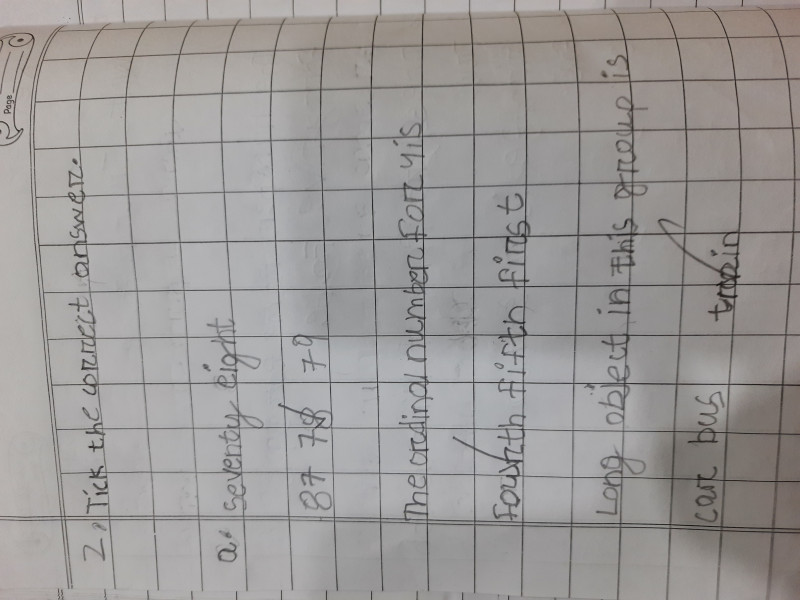 Page
2. Tick the correct answer.
a. seventy eight
87 78 79
The ordinal number For 4 is
Fourth Fifth First
Long object in this group is
car bus train